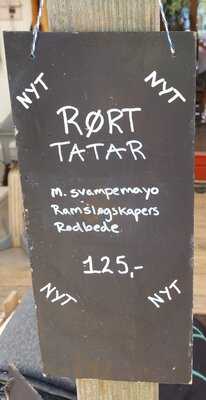 NYT
NYT
RØRT
TATAR
m. svampemayo
Ramsløgskapers
Rødbede
125,-
NYT
NYT